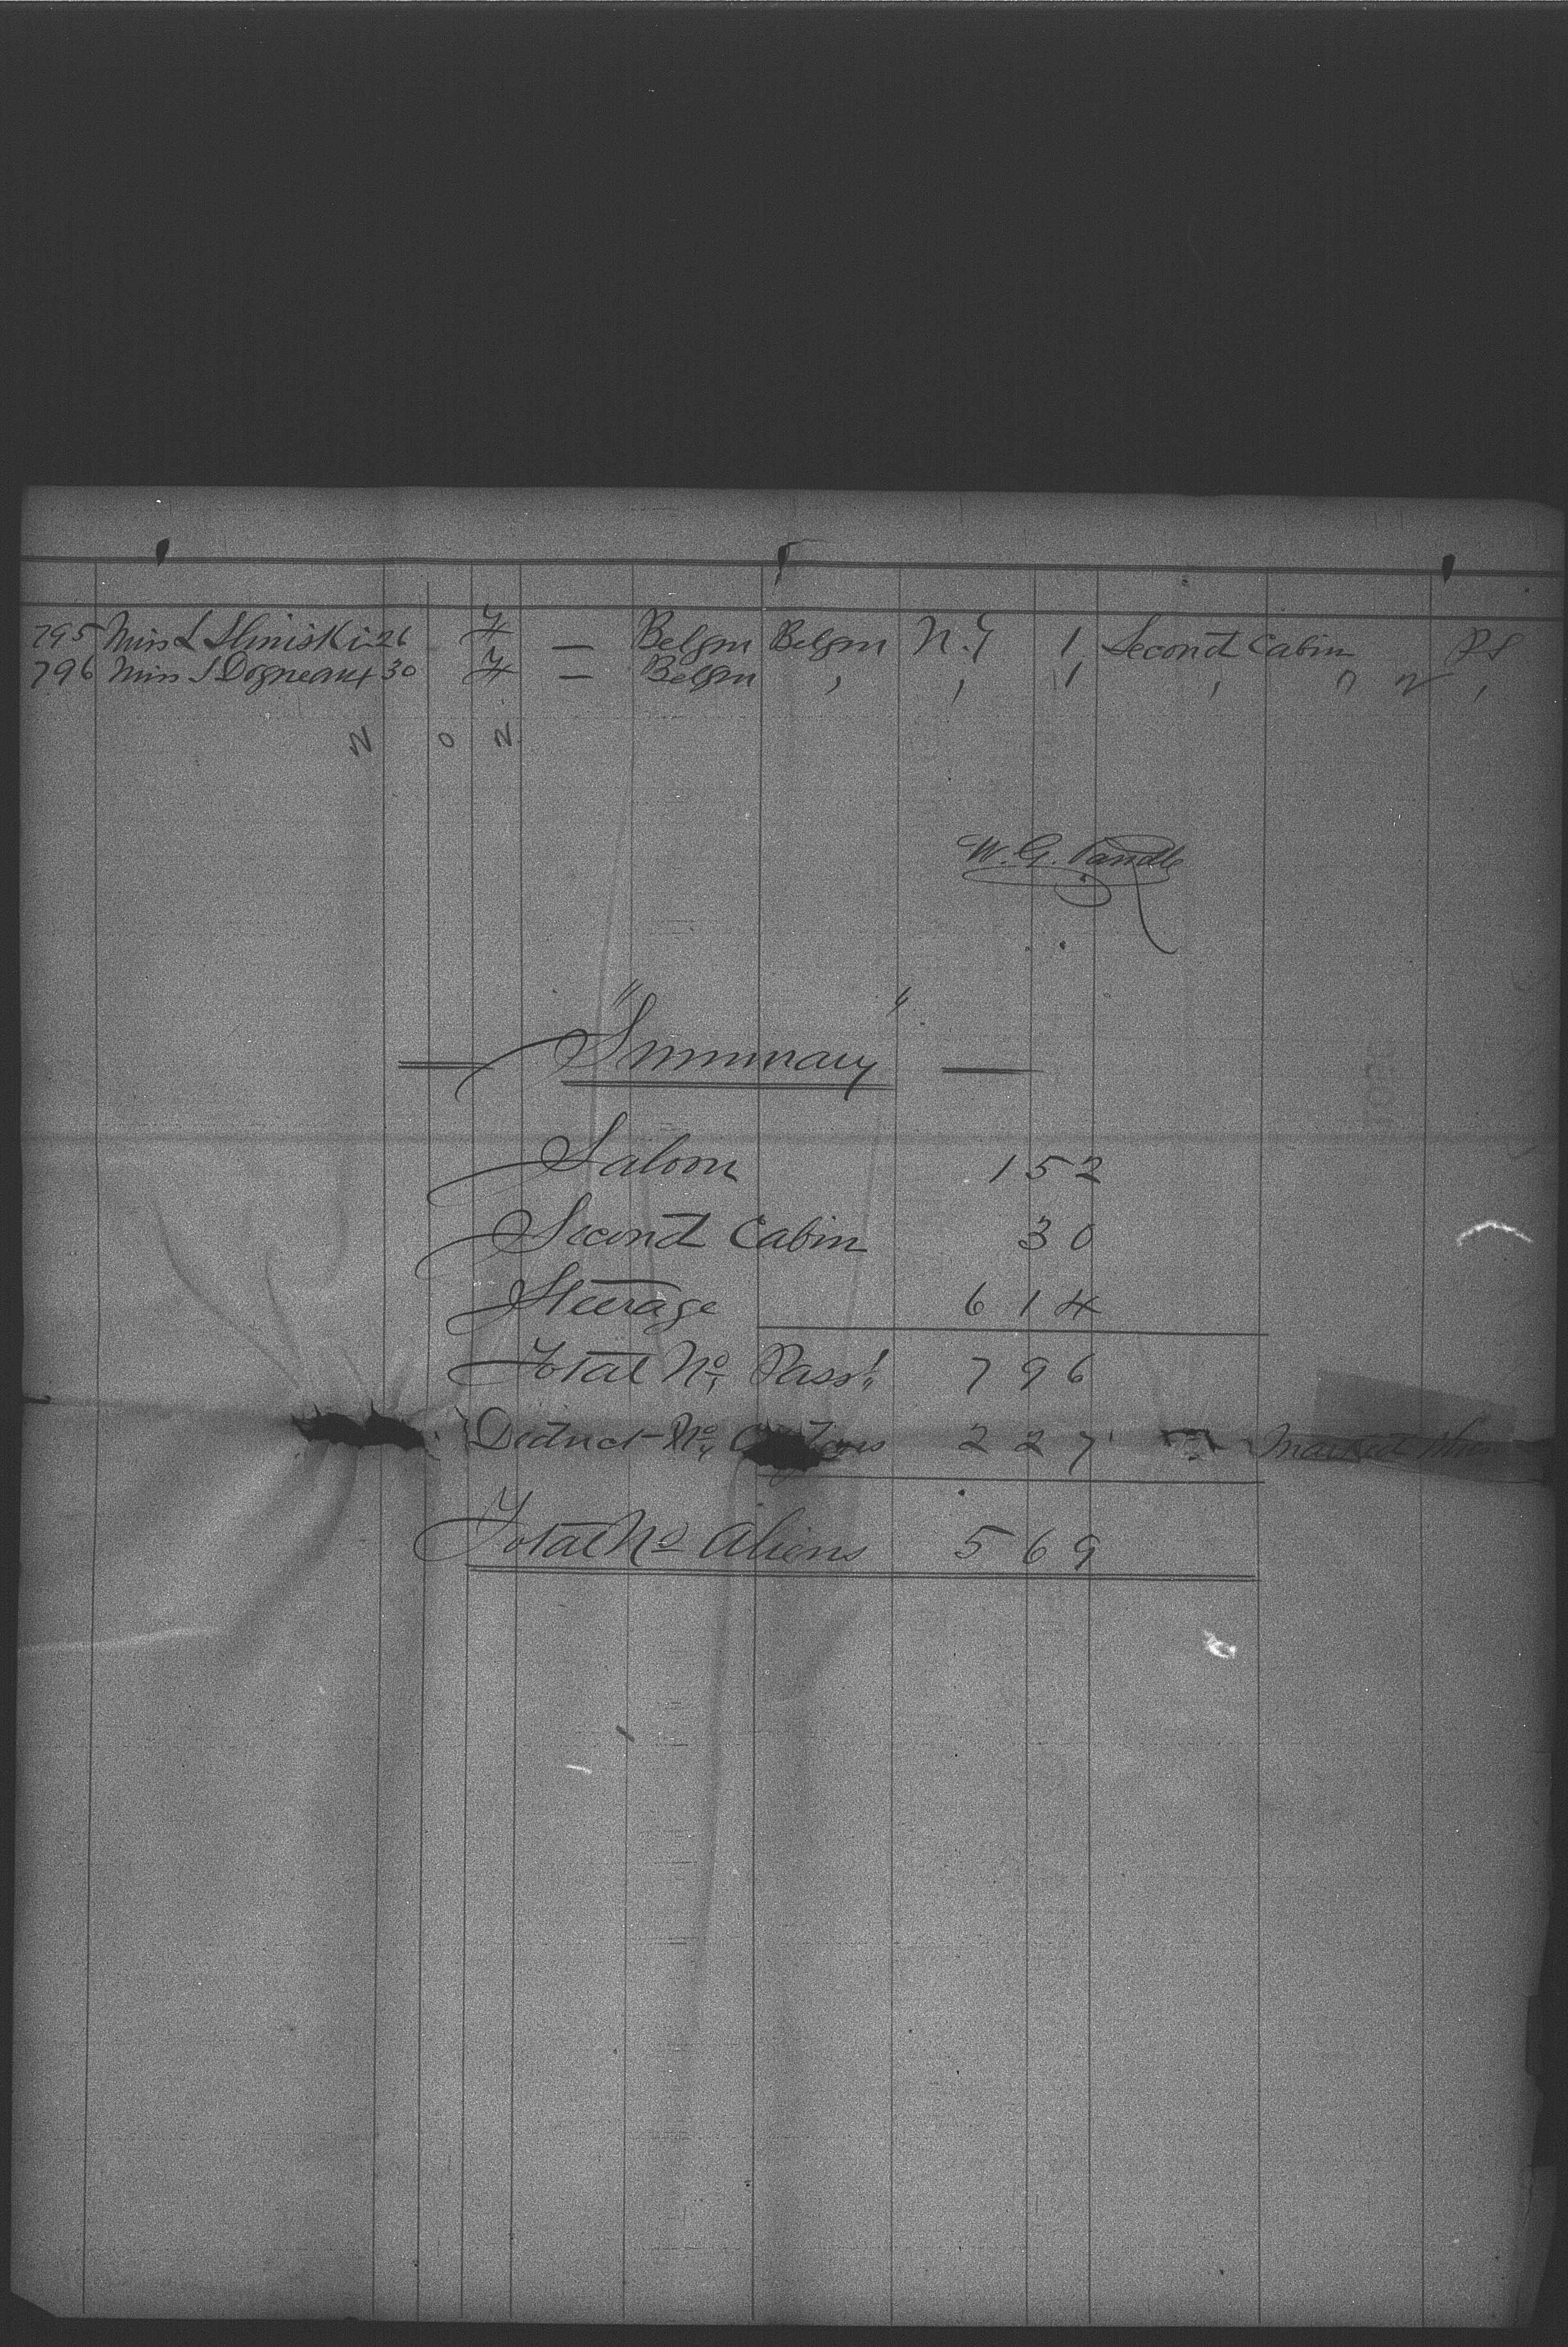 795 Miss L Sliniski 26 F — Belgm Belgm N.Y 1 Second Cabin PS
796 Miss J Dogneaux 30 F — Belgm " " 1 " " "
N O N
W. G. Randle
"Summary"
Saloon 152
Second Cabin 30
Steerage 614
Total No. Pass. 796
Deduct No. 227 Marked thus
Total No Aliens 569